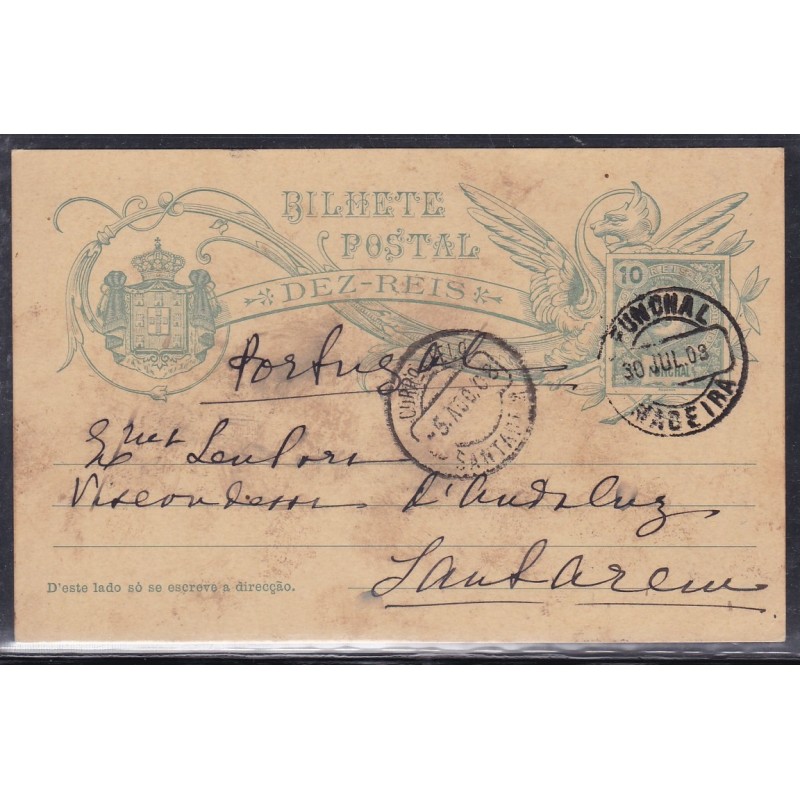 BILHETE
POSTAL
DEZ-REIS
10
FUNCHAL
30 JUL.03
MADEIRA
CORREIO
5.AGO.03
SANTAREM
Portugal
Exma Senhora
Viscondessa d'Andaluz
Santarem
D'este lado só se escreve a direcção.